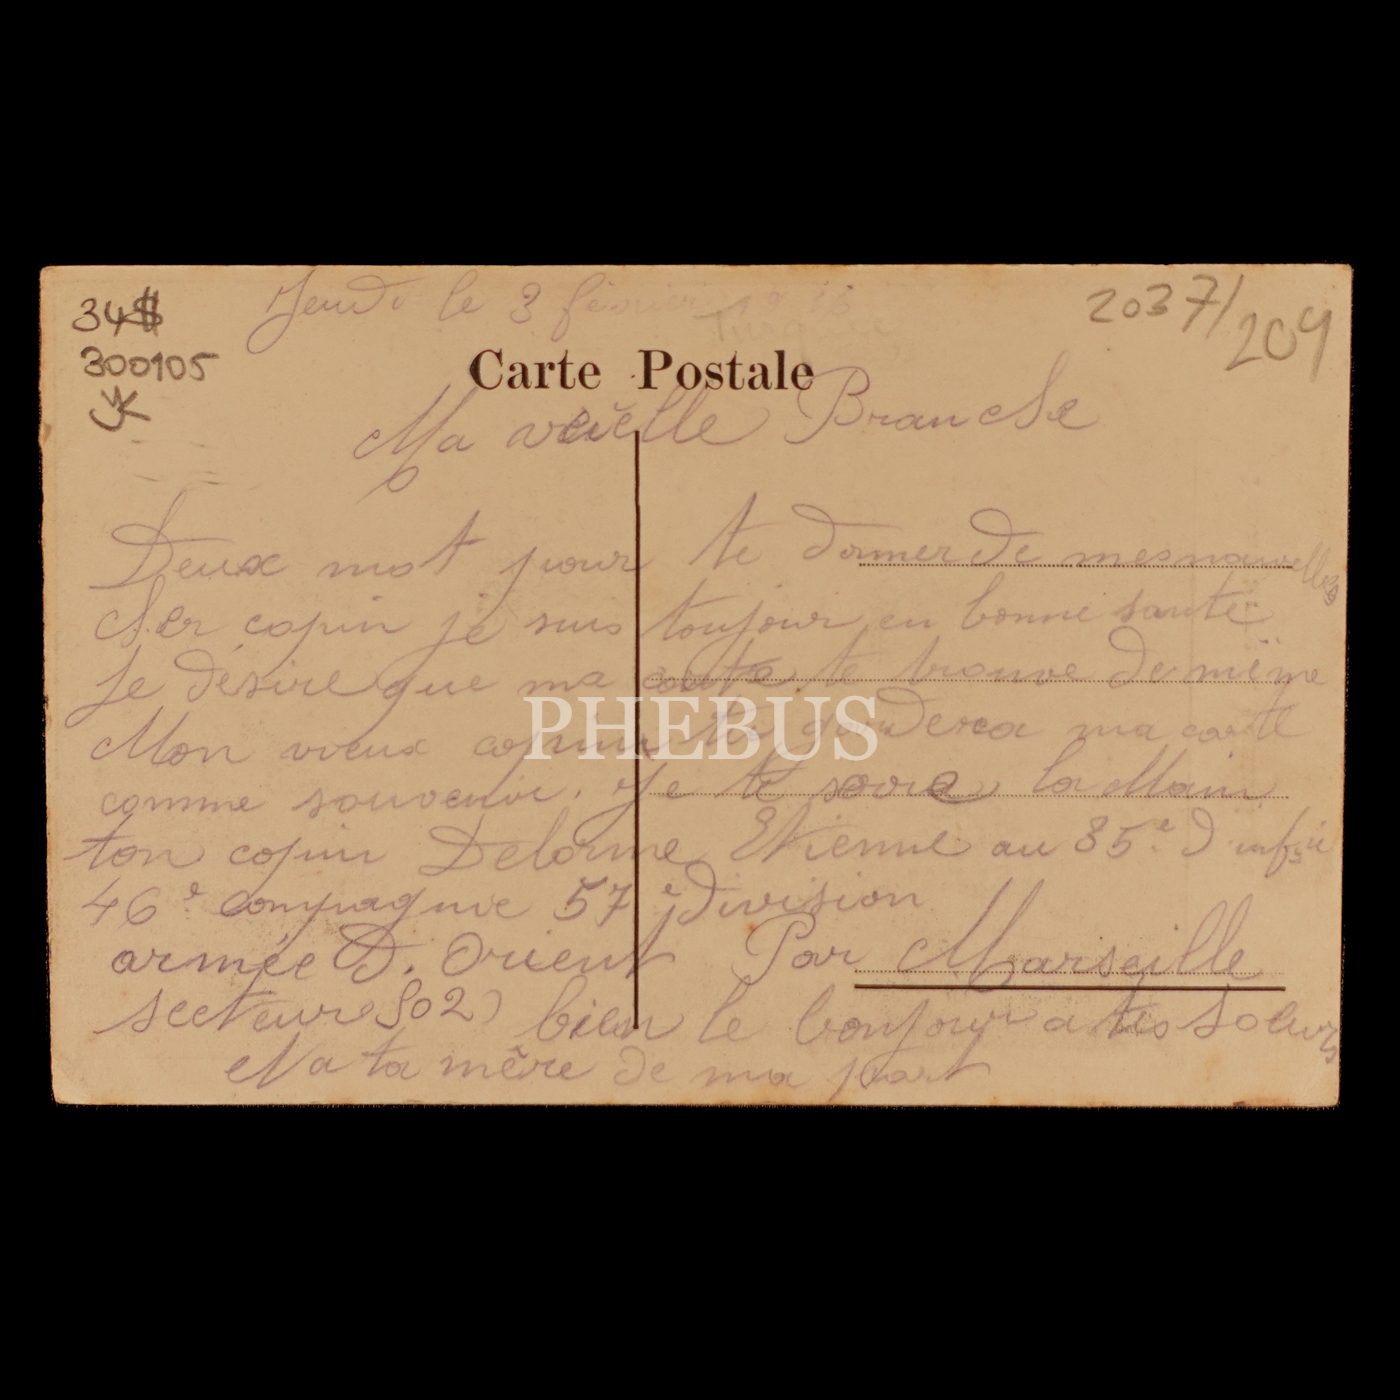 Jeudi le 3 février 1916
34$
300105
2037/209
Carte Postale
Ma vieille Branche
Deux mot pour te donner de mes nouvelles
Cher copin je suis toujour en bonne santé
Je désire que ma carte te trouve de même
Mon vieux copin tu garderca ma carte
comme souvenir. Je te serre la Main
ton copin Delorme Etienne au 85e D
46e compagnie 57e division
armée D. Orient Par Marseille
secteur 502) bien le bonjour a tes Soeurs
et a ta mère de ma part
PHEBUS